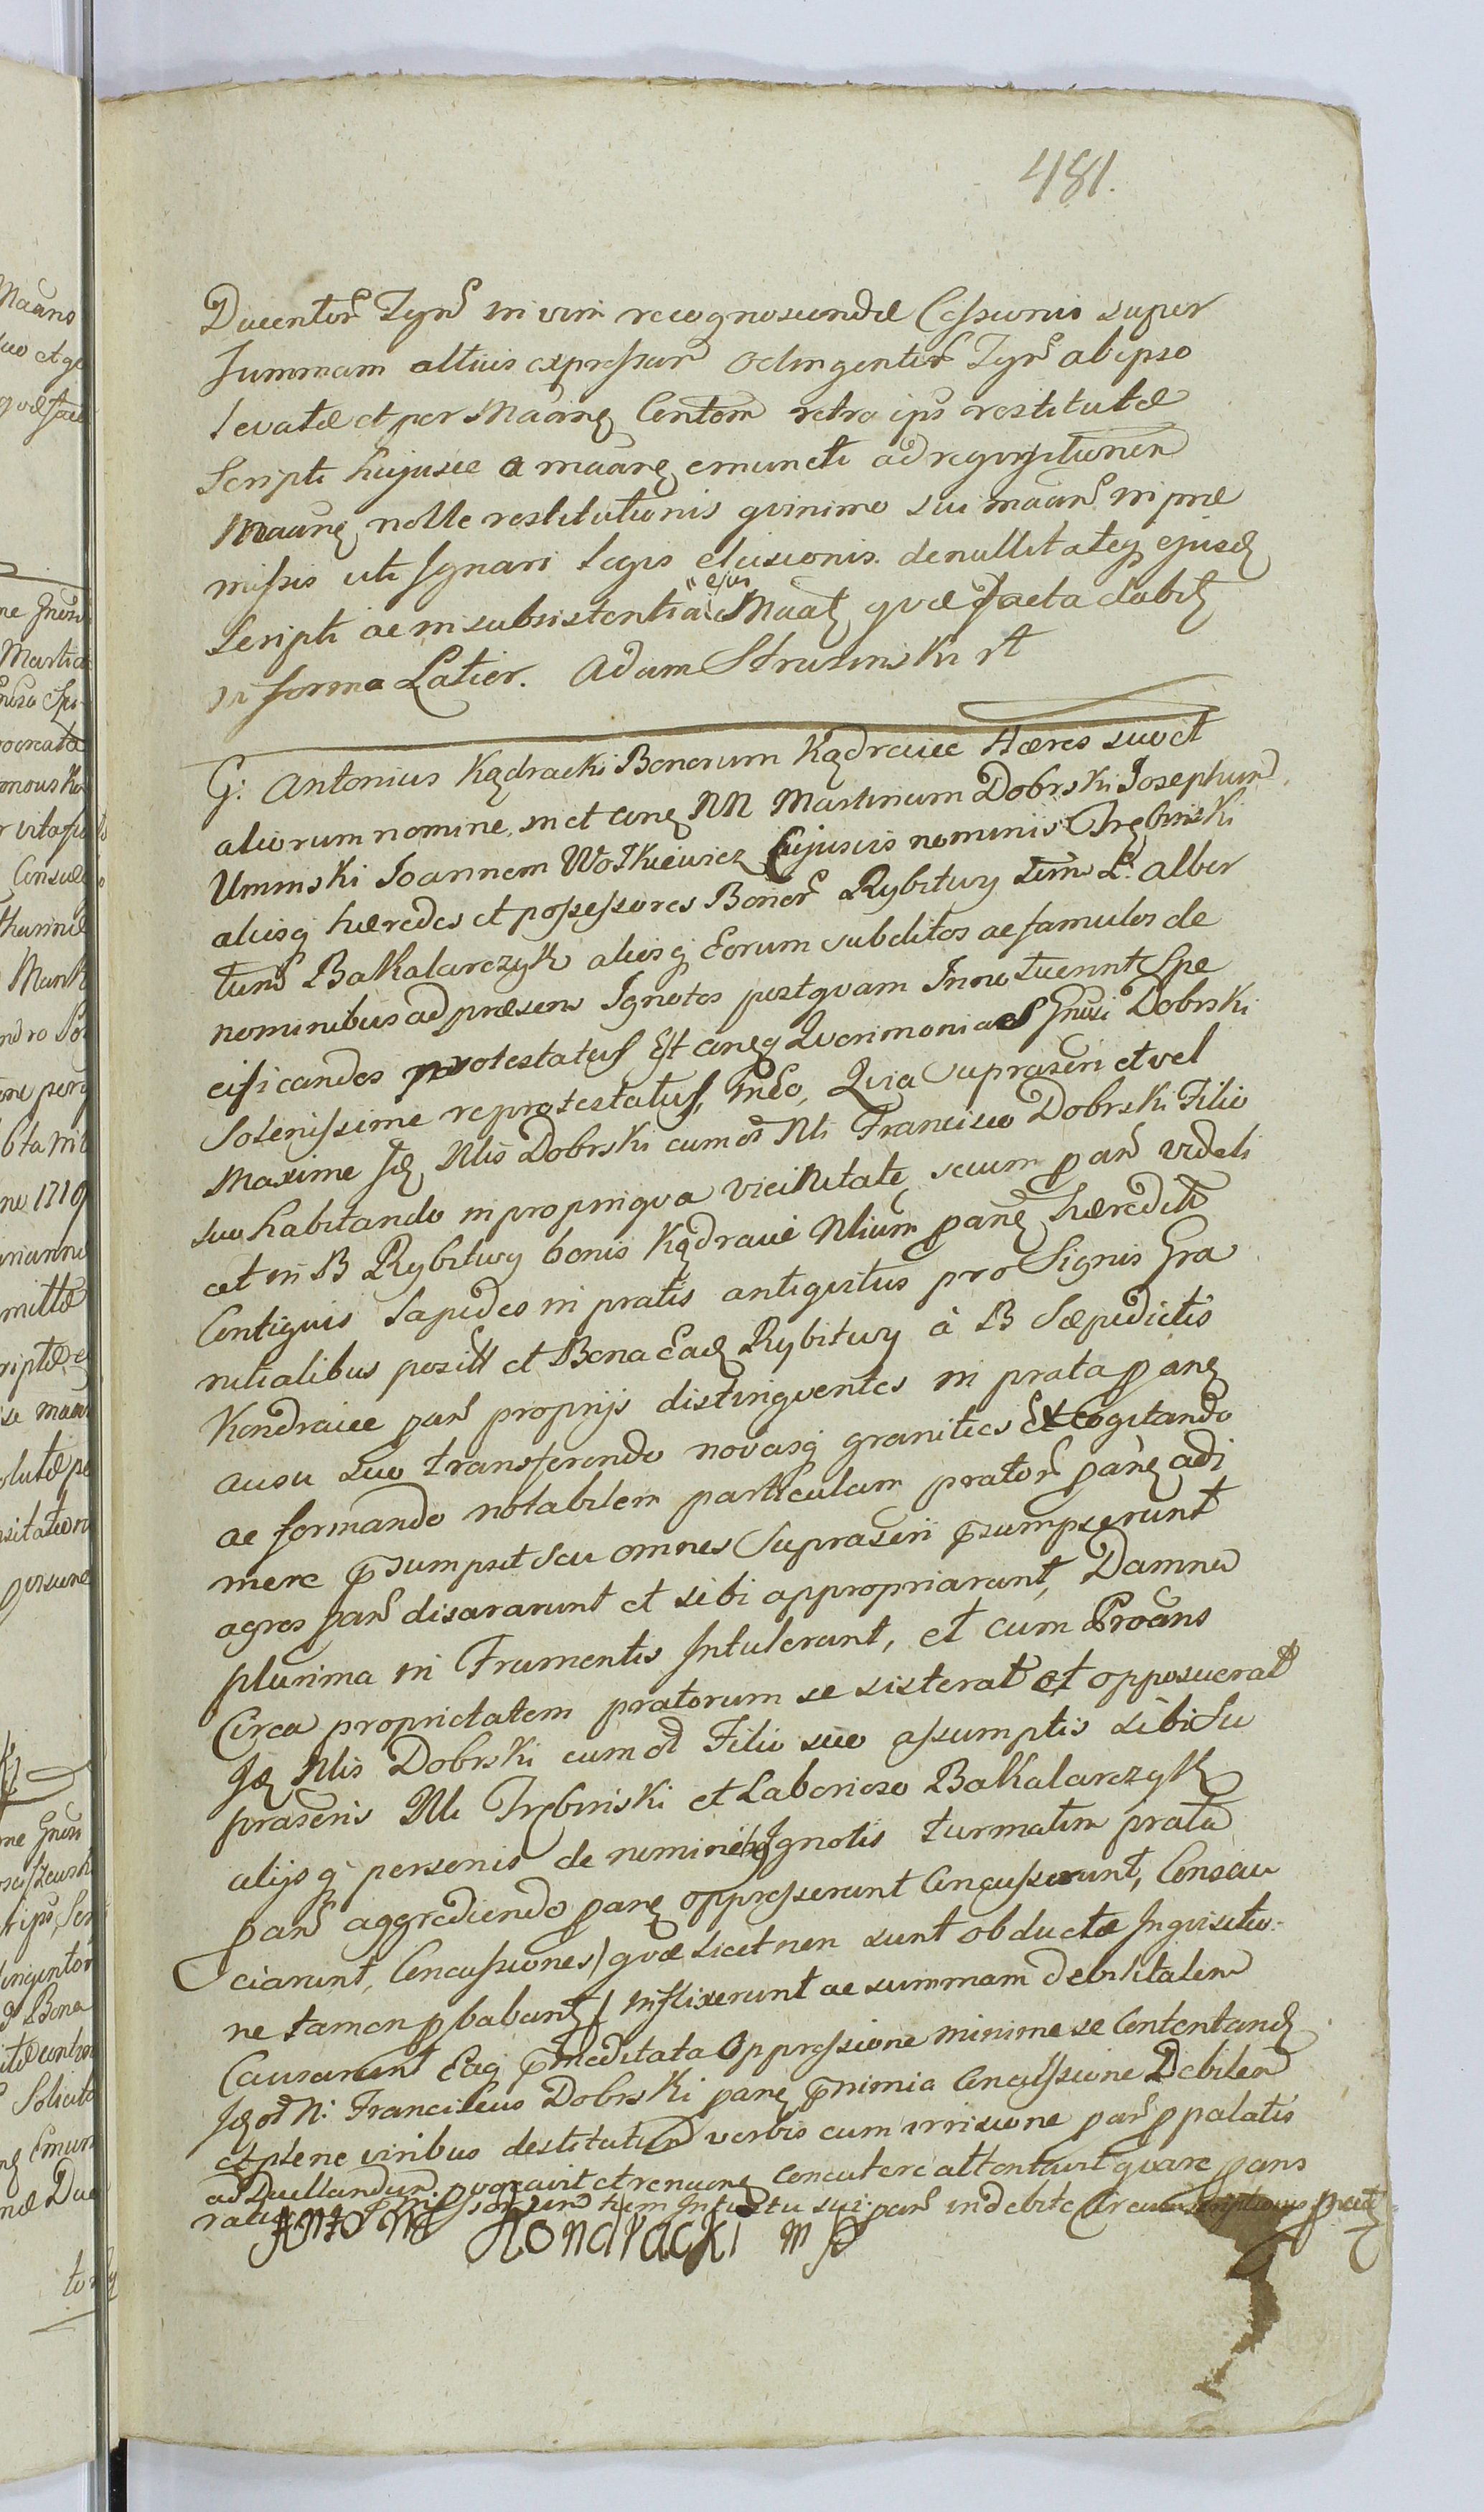 481.
Ducentor Tynf in vim recognoscendæ Cessionis super
Summam altius expressam Octingentor Tynf ab ipso
levatæ et per Maanę Contem retro ipsi restitutæ
Scripti hujusce a maanę emuncti ad requisitionem
Maanę nolle restitutionis quinimo sui maans in præ
missis uti Ignari legis elusionis. de nullitateq ejusd
Scripti ac in subsistentia ejus Maatę quæ facta dabit
in forma Latior. Adam Strutinski rt
G: Antonius Kądracki Bonorum Kądraiec Hæres suo et
aliorum nomine in et cirą NN Martinum Dobrski Josephum
Uminski Joannem Wołkiewicz Cujusvis nominis Trębinski
aliosq hæredes et possessores Bonor Rybitwy tum L. alber
tum Bakalarczyk aliosq Eorum subditos ac famulos de
nominibus ad præsens Ignotos postquam Innotuerint Spe
cificandos protestatus Est cirąq Querimonias Gnosi Dobrski
Solenissime reprotestatus, Ideo, Quia Suprascri et vel
Maxime Id Nlis Dobrski cum od Nli Francisco Dobrski Filio
suo habitando in propinqua vicinitate secum pan videli
cet in B Rybitwy bonis Kądraiec Nlium panę hæredit
Contiguis Lapides in pratis antiquitus pro Signis Gra
nitialibus posill et Bona Ead Rybitwy à B Sæpedictis
Kondraiec pan proprijs distinguentes in prata panę
ausu suo transferendo novasq granities Excogitando
ac formando notabilem particulam prator panę adi
mere psumpsit seu omnes Suprascri psumpserunt
agros pan disararunt et sibi appropriarunt, Damna
plurima in Frumentis Intulerunt, et cum Proans
Circa proprietatem pratorum se sisterat et opposuerat
Id Nlis Dobrski cum od Filio suo assumptis sibi Su
prascris Nli Trębinski et Laborioso Bakalarczyk
alijsq personis de nominib Ignotis turmatim prata
pan aggrediendo panę oppresserunt Concusserunt, Consau
ciarunt, Concussiones / quæ licet non sunt obductæ Inquisitio-
ne tamen pbabunt / inflixerunt ac summam debilitatem
Causarunt Eaq pmeditata Oppressione minime se Contentand
Id od N: Franciscus Dobrski panę pnimia Concussione Debilem
et plene viribus destitutum verbis cum irrisione pan ppalatis
ad Duellandum provocavit et rursum concutere attentavit quare pans
Antoni Kondracki mp